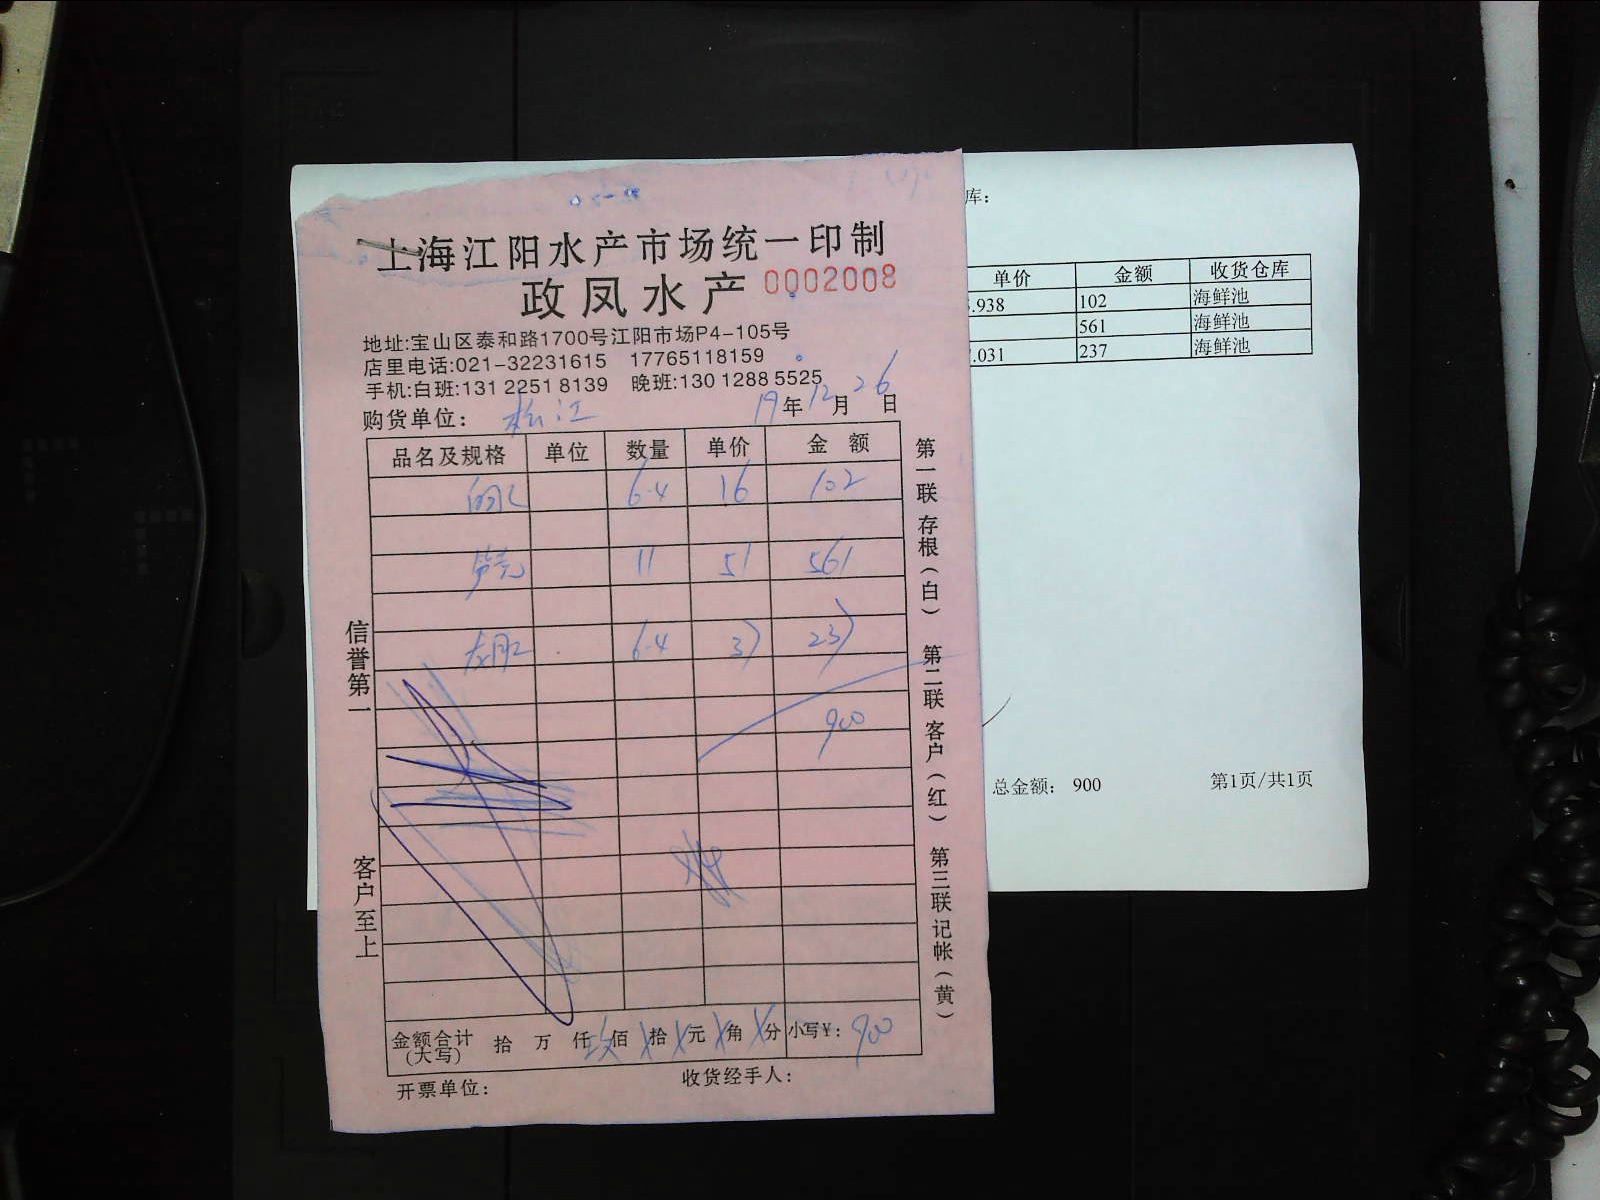 上海江阳水产市场统一印制
政凤水产 0002008
地址:宝山区泰和路1700号江阳市场P4-105号
店里电话:021-32231615 17765118159
手机:白班:131 2251 8139 晚班:130 1288 5525
购货单位: 松江 19年12月26日
品名及规格 单位 数量 单价 金额
6.4 16 102
11 51 561
6.4 37 237
900
金额合计(大写) 拾 万 仟 玖佰 拾 元 角 分 小写¥: 900
开票单位: 收货经手人:
信誉第一
客户至上
第一联 存根(白) 第二联 客户(红) 第三联 记帐(黄)
库:
单价 金额 收货仓库
.938 102 海鲜池
561 海鲜池
.031 237 海鲜池
总金额: 900 第1页/共1页